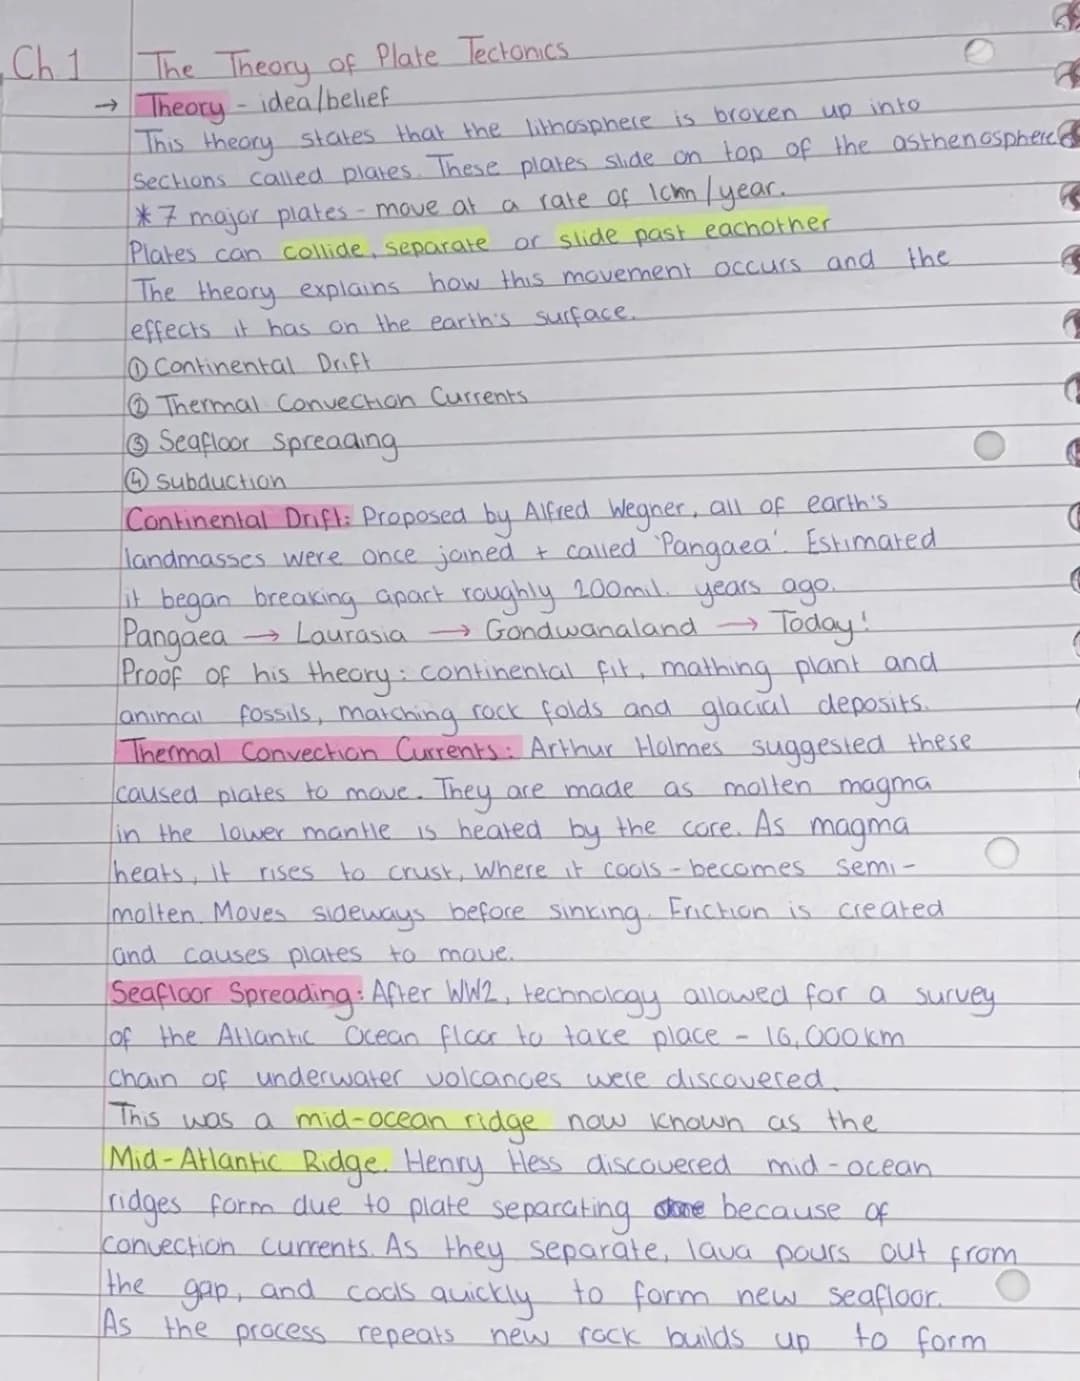 Ch 1 The Theory of Plate Tectonics
→ Theory - idea/belief
This theory states that the lithosphere is broken up into
sections called plates. These plates slide on top of the asthenosphere
* 7 major plates - move at a rate of 1cm/year.
Plates can collide, separate or slide past eachother
The theory explains how this movement occurs and the
effects it has on the earth's surface.
① Continental Drift
② Thermal Convection Currents
③ Seafloor Spreading
④ Subduction
Continental Drift: Proposed by Alfred Wegner, all of earth's
landmasses were once joined + called 'Pangaea'. Estimated
it began breaking apart roughly 200mil. years ago.
Pangaea → Laurasia → Gondwanaland → Today!
Proof of his theory: continental fit, mathing plant and
animal fossils, matching rock folds and glacial deposits.
Thermal Convection Currents: Arthur Holmes suggested these
caused plates to move. They are made as molten magma
in the lower mantle is heated by the core. As magma
heats, it rises to crust, where it cools - becomes semi-
molten. Moves sideways before sinking. Friction is created
and causes plates to move.
Seafloor Spreading: After WW2, technology allowed for a survey
of the Atlantic Ocean floor to take place - 16,000km
chain of underwater volcanoes were discovered.
This was a mid-ocean ridge now known as the
Mid-Atlantic Ridge. Henry Hess discovered mid-ocean
ridges form due to plate separating because of
convection currents. As they separate, lava pours out from
the gap, and cools quickly to form new seafloor.
As the process repeats new rock builds up to form